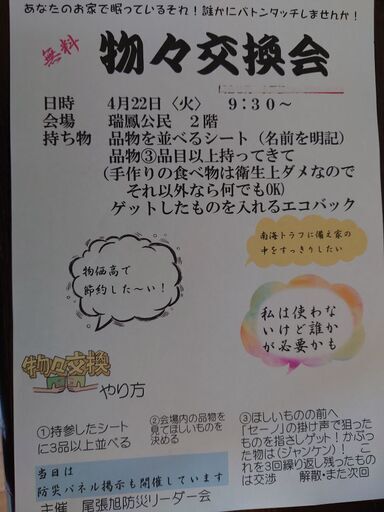 あなたのお家で眠っているそれ！誰かにバトンタッチしませんか！
無料
物々交換会
日時　4月22日〈火〉　9：30～
会場　瑞鳳公民　２階
持ち物　品物を並べるシート（名前を明記）
品物③品目以上持ってきて
(手作りの食べ物は衛生上ダメなので
それ以外なら何でもOK)
ゲットしたものを入れるエコバック
南海トラフに備え家の
中をすっきりしたい
物価高で
節約した～い！
私は使わな
いけど誰か
が必要かも
物々交換
やり方
①持参したシート
に3品以上並べる
②会場内の品物を
見てほしいものを
決める
③ほしいものの前へ
「セーノ」の掛け声で狙った
ものを指さしゲット！かぶっ
た物は(ジャンケン)！　こ
れを3回繰り返し残ったもの
は交渉　　解散・また次回
当日は
防災パネル掲示も開催しています
主催　尾張旭防災リーダー会